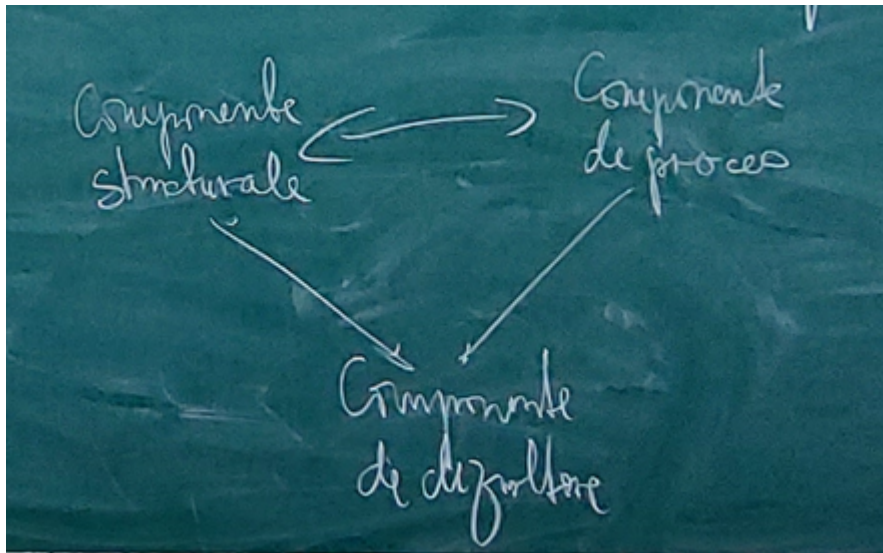 Componente
structurale
Componente
de proces
Componente
de dezvoltare